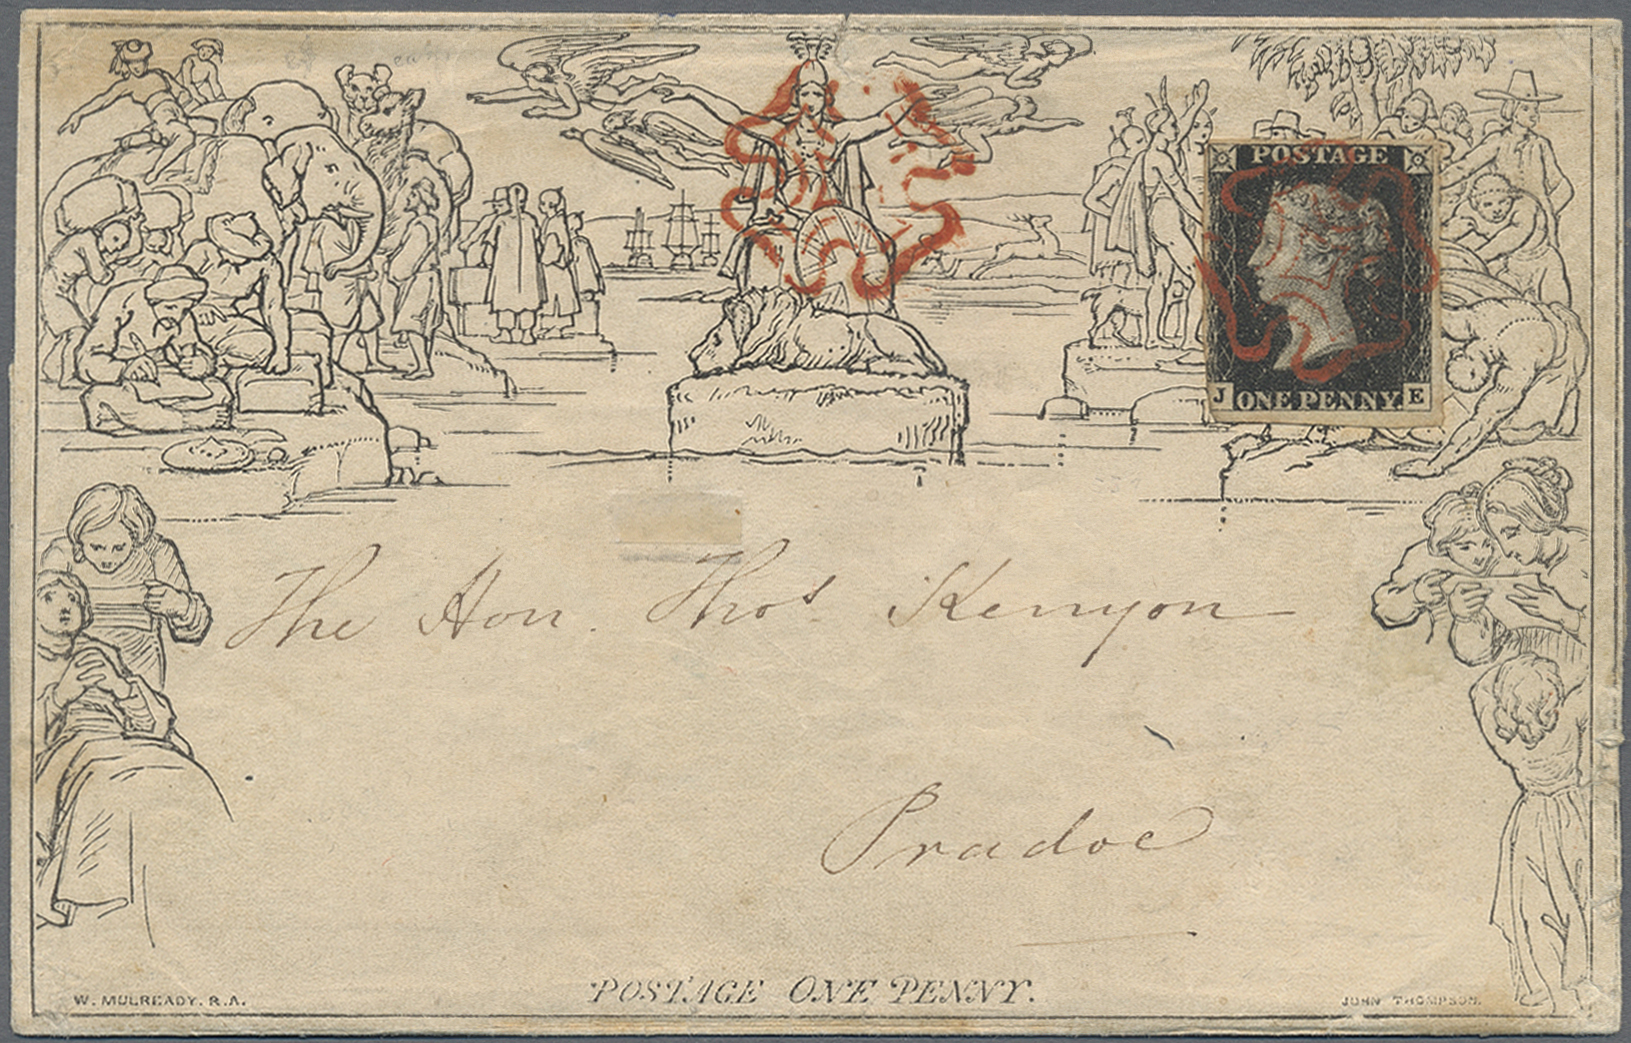 POSTAGE
J ONE PENNY. E
The Hon. Thos. Kenyon
Pradoe
POSTAGE ONE PENNY.
W. MULREADY. R.A.
JOHN THOMPSON.